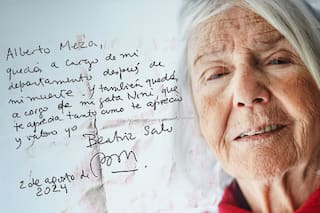 Alberto Meza,
quedás a cargo de mi
departamento después de
mi muerte. y también quedás
a cargo de mi gata Niní que
te aprecia tanto como te aprecio
y valoro yo
Beatriz Sarlo
2 de agosto de
2024